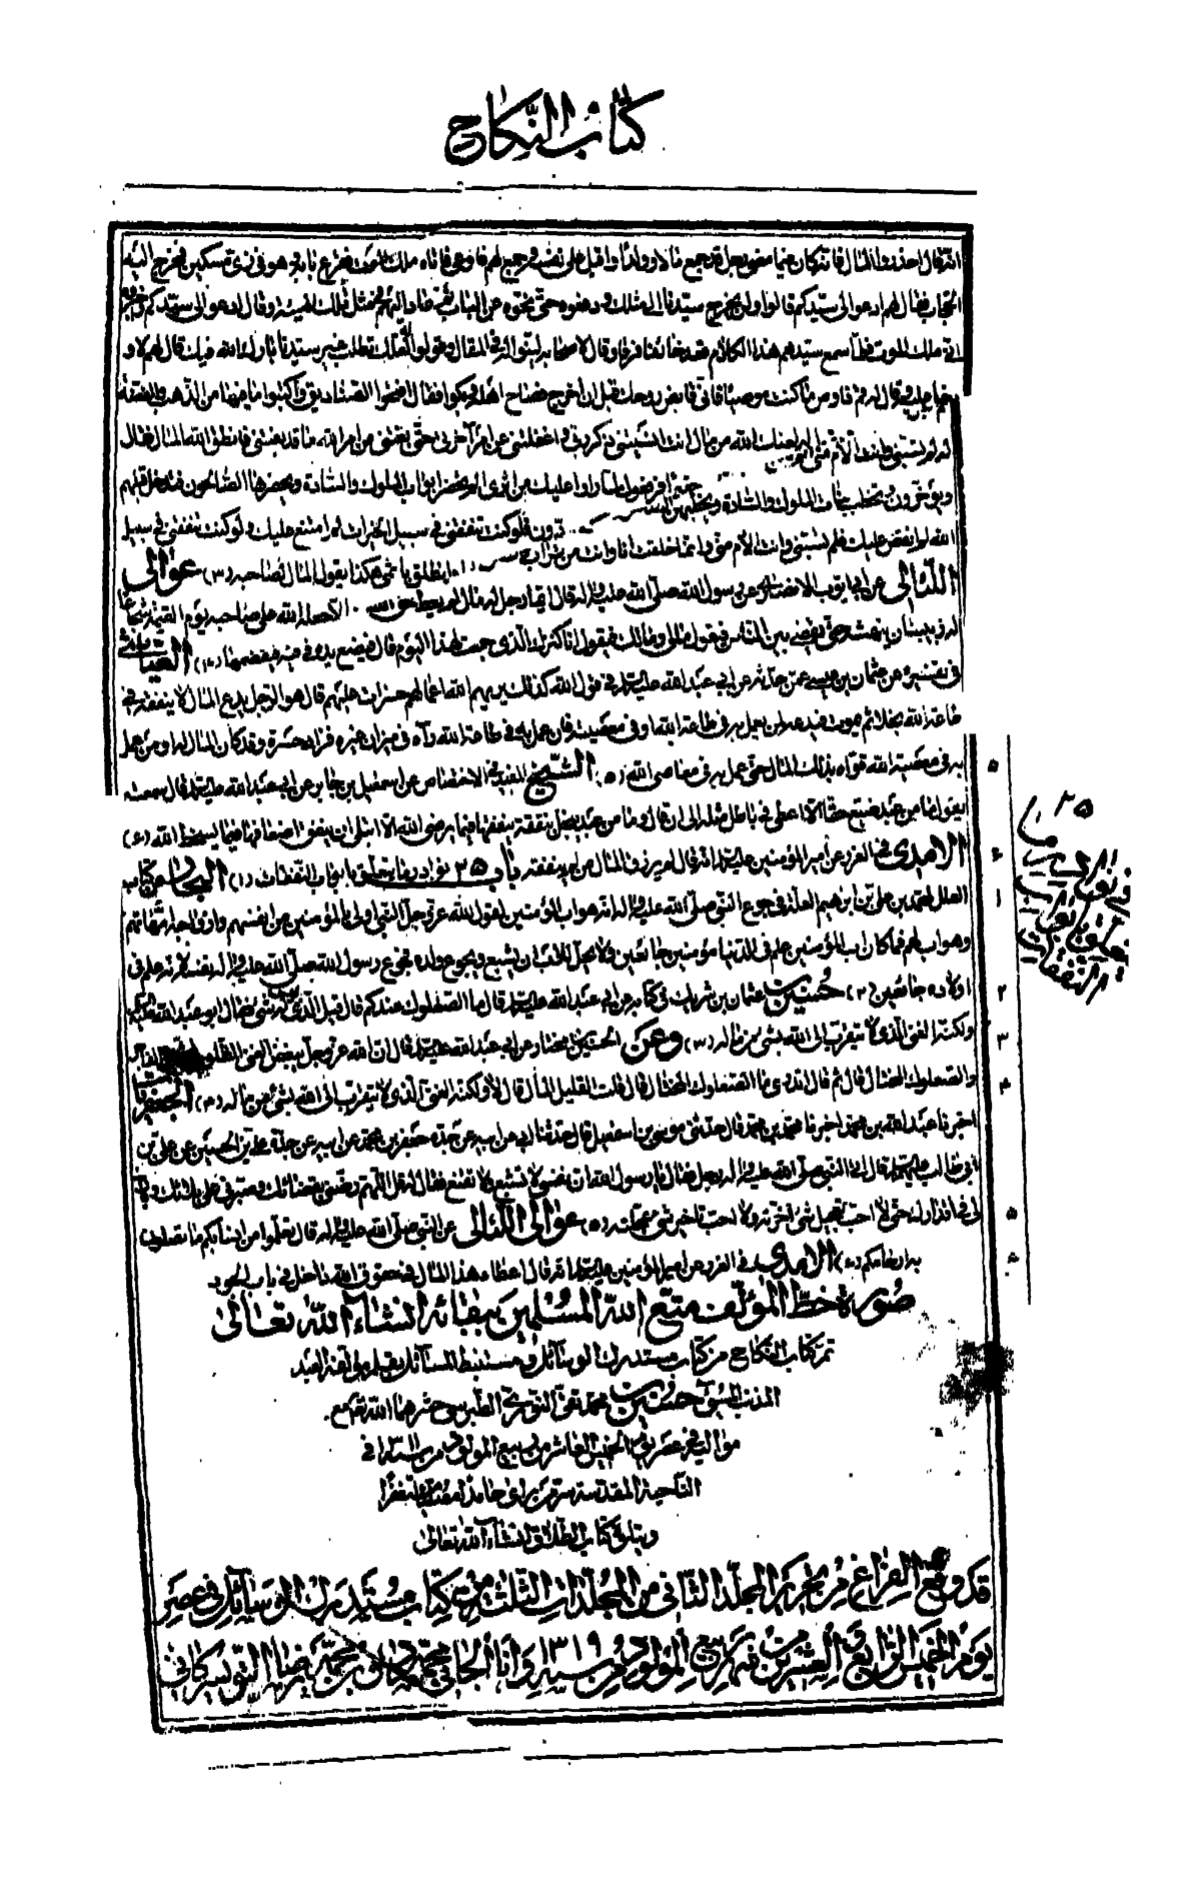 كتاب النكاح
انه قال احذروا المال فانه كان فيما مضى رجل قد جمع مالا وولدا واقبل على نفسه وجمع لهم فاوعى فاتاه ملك الموت فقرع بابه وهو في زي مسكين فخرج اليه
الحجاب فقال لهم ادعوا لي سيدكم قالوا ويخرج سيدنا الى مثلك ودفعوه حتى نحوه عن الباب ثم عاد اليهم في مثل تلك الهيئة وقال ادعوا لي سيدكم
اني ملك الموت فلما سمع سيدهم هذا الكلام قعد خائفا فرقا وقال لاصحابه لينوا له في المقال وقولوا له لعلك تطلب غير سيدنا بارك الله فيك قال لهم لا و
دخل عليه وقال له قم فاوص ما كنت موصيا فاني قابض روحك قبل ان اخرج فصاح اهله وبكوا فقال افتحوا الصناديق واكتبوا ما فيها من الذهب والفضة
لعنك الله من مال انت انسيتني ذكر ربي واغفلتني عن امر آخرتي حتى بغتني من امر الله ما قد بغتني فانطق الله المال فقال
الله لم ينفض عليك فلم تسبني وانت الأم مني وانما خلقت انا وانت من تراب
هكذا يقول المال لصاحبه (٣) عوالي
اللئالي عن ابي ايوب الانصاري عن رسول الله صلى الله عليه وآله قال ايما رجل له مال لم يعط حق الله
الا جعله الله على صاحبه يوم القيمة شجاعا
له زبيبتان ينهشه حتى يقضى بين الناس فيقول مالي ومالك فيقول انا كنزك الذي جمعت لهذا اليوم قال فيضع يده في فيه فيقضمها (٤) العياشي
في تفسيره عن عثمان بن عيسى عمن حدثه عن ابي عبد الله عليه السلام في قول الله كذلك يريهم الله اعمالهم حسرات عليهم قال هو الرجل يدع المال لا ينفقه في
طاعة الله بخلا ثم يموت فيدعه لمن يعمل به في طاعة الله او في معصيته فان عمل به في طاعة الله رآه في ميزان غيره فزاده حسرة وقد كان المال له او من عمل
به في معصية الله قواه بذلك المال حتى عمل به في معاصي الله (٥) الشيخ المفيد في الاختصاص عن اسمعيل بن جابر عن ابي عبد الله عليه السلام قال سمعته
يقول ما من عبد ضيع حقا الا اعطى في باطل مثليه الى ان قال وما من عبد يبخل بنفقة ينفقها فيما يرضي الله الا ابتلي ان ينفق اضعافها فيما يسخط الله (٦)
الامدي في الغرر عن امير المؤمنين عليه السلام انه قال لم يرزق المال من لم ينفقه باب ٢٥ نوادر ما يتعلق بابواب النفقات (١) البحار عن كتاب
العلل لمحمد بن علي بن ابراهيم العلة في جوع النبي صلى الله عليه وآله انه هو اب المؤمنين لقول الله عز وجل النبي اولى بالمؤمنين من انفسهم وازواجه امهاتهم
وهو اب لهم فلما كان اب المؤمنين علم في الدنيا مؤمنين جائعين ولا يحل للاب ان يشبع ويجوع ولده فجوع رسول الله صلى الله عليه وآله نفسه لانه علم في
اولاده جائعين (٢) حسين بن عثمان بن شريك في كتابه عن ابي عبد الله عليه السلام قال ما الصعلوك عندكم قال قيل الذي ليس له شيء فقال ابو عبد الله
ولكنه الغني الذي لا يتقرب الى الله بشيء من ماله (٣) وعن الحسين بن مختار عن ابي عبد الله عليه السلام قال ان الله عز وجل يبغض الغني الظلوم
والصعلوك المختال قال ثم قال اتدري ما الصعلوك المختال قال قلت القليل المال قال لا ولكنه الغني الذي لا يتقرب الى الله بشيء من ماله (٤) الجعفريات
اخبرنا عبد الله بن محمد اخبرنا محمد بن محمد قال حدثني موسى بن اسمعيل قال حدثنا ابي عن ابيه عن جده جعفر بن محمد عن ابيه عن جده علي بن الحسين عن علي بن
ابي طالب عليهم السلام قال اتى النبي صلى الله عليه وآله رجل فقال يا رسول الله ان نفسي لا تشبع ولا تقنع فقال له قل اللهم رضني بقضائك وصبرني على بلائك وبارك
لي في اقدارك حتى لا احب تعجيل شيء اخرته ولا احب تاخير شيء عجلته (٥) عوالي اللئالي عن النبي صلى الله عليه وآله قال تعلموا من انسابكم ما تصلون
به ارحامكم (٦) الامدي في الغرر عن امير المؤمنين عليه السلام انه قال اعطاء هذا المال في حقوق الله داخل في باب الجود
صورة خط المؤلف متع الله المسلمين ببقائه انشاء الله تعالى
تم كتاب النكاح من كتاب مستدرك الوسائل ومستنبط المسائل بقلم مؤلفه العبد
المذنب المسيء حسين بن محمد تقي النوري الطبرسي حشرهما الله تعالى مع
مواليه في عصر يوم الخميس العاشر من ربيع المولود من السنة في
الناحية المقدسة سر من رأى حامدا مصليا مستغفرا
ويتلوه كتاب الطلاق انشاء الله تعالى
قد وقع الفراغ من تحرير المجلد الثاني من المجلدات الثلث من كتاب مستدرك الوسائل في عصر
يوم الخميس الرابع والعشرين من شهر ربيع المولود من سنة ١٣١٩ وانا الجاني محمد صادق بن محمد رضا التويسركاني
٥
٦
١
٢
٣
٤
٥
٦
٢٥